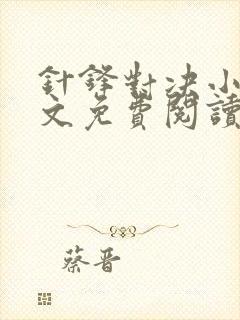 針鋒對决小
文免費閱讀
蔡晋